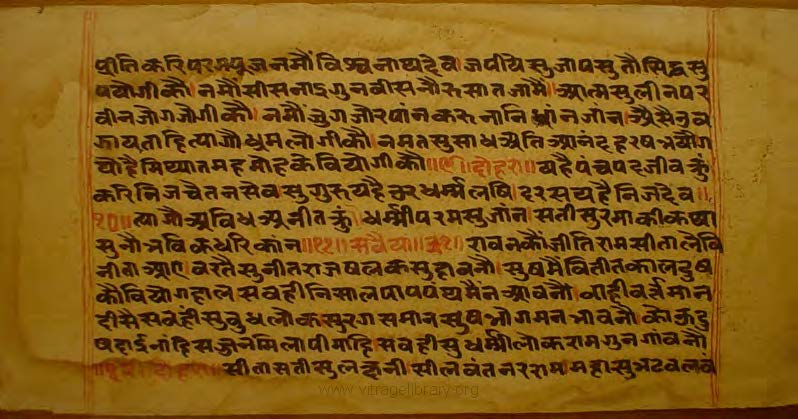 प्रीतिकरिपरमपूजनमौंविश्वनाथदेव।जपीयेसुजापसुतौसिद्धसु
पयोगीकौ।नमौंसीसनाऽगुनवीसनौरुसातजामैं।आत्मसुलीनपर
वीनजोगजोगीकौ।नमौंजुगजोरपांनकरुनानिधांनजांन।
गायताहित्यागौधूमलौगीकौ।नमतसुसाधअतिआनंदहरषभयौग
यौहैमिथ्यातमहमोहकेवियोगीकौ॥९॥दोहरा॥यहैपंचपदजीवकुं
करिनिजचेतनसेवसुगुरूयहैअरधर्म्मलषि।दरसयहैनिजदेव॥
१०॥त्यागौअविधअनीतकुं।धर्म्मीपरमसुजांन।सतीसुरमाकीकथा
सुनौभविकधरिकांन॥११॥सवैया॥३१॥रावनकौंजीतिरामसीतालेवि
नीताआए।वरतैसुनीतराजषलकसुहावनौ।सुषमैंवितीतकालदुष
कौवियोगहालसवहीनिसालपापपंथमैंनआवनौ।वाहीवर्त्तमान
दीसैसवहीसुवुधलोकसुरगसमानसुषभोगमनभावनौ।कोऊदु
षदाईनांहिसज्जनमिलापीमांहिसवहीसुधर्म्मीलोकरामगुनगांवनौ
सीतासतीसुलछनी।सीलवंतनररामामहासुभटवलवं
www.vitragelibrary.org